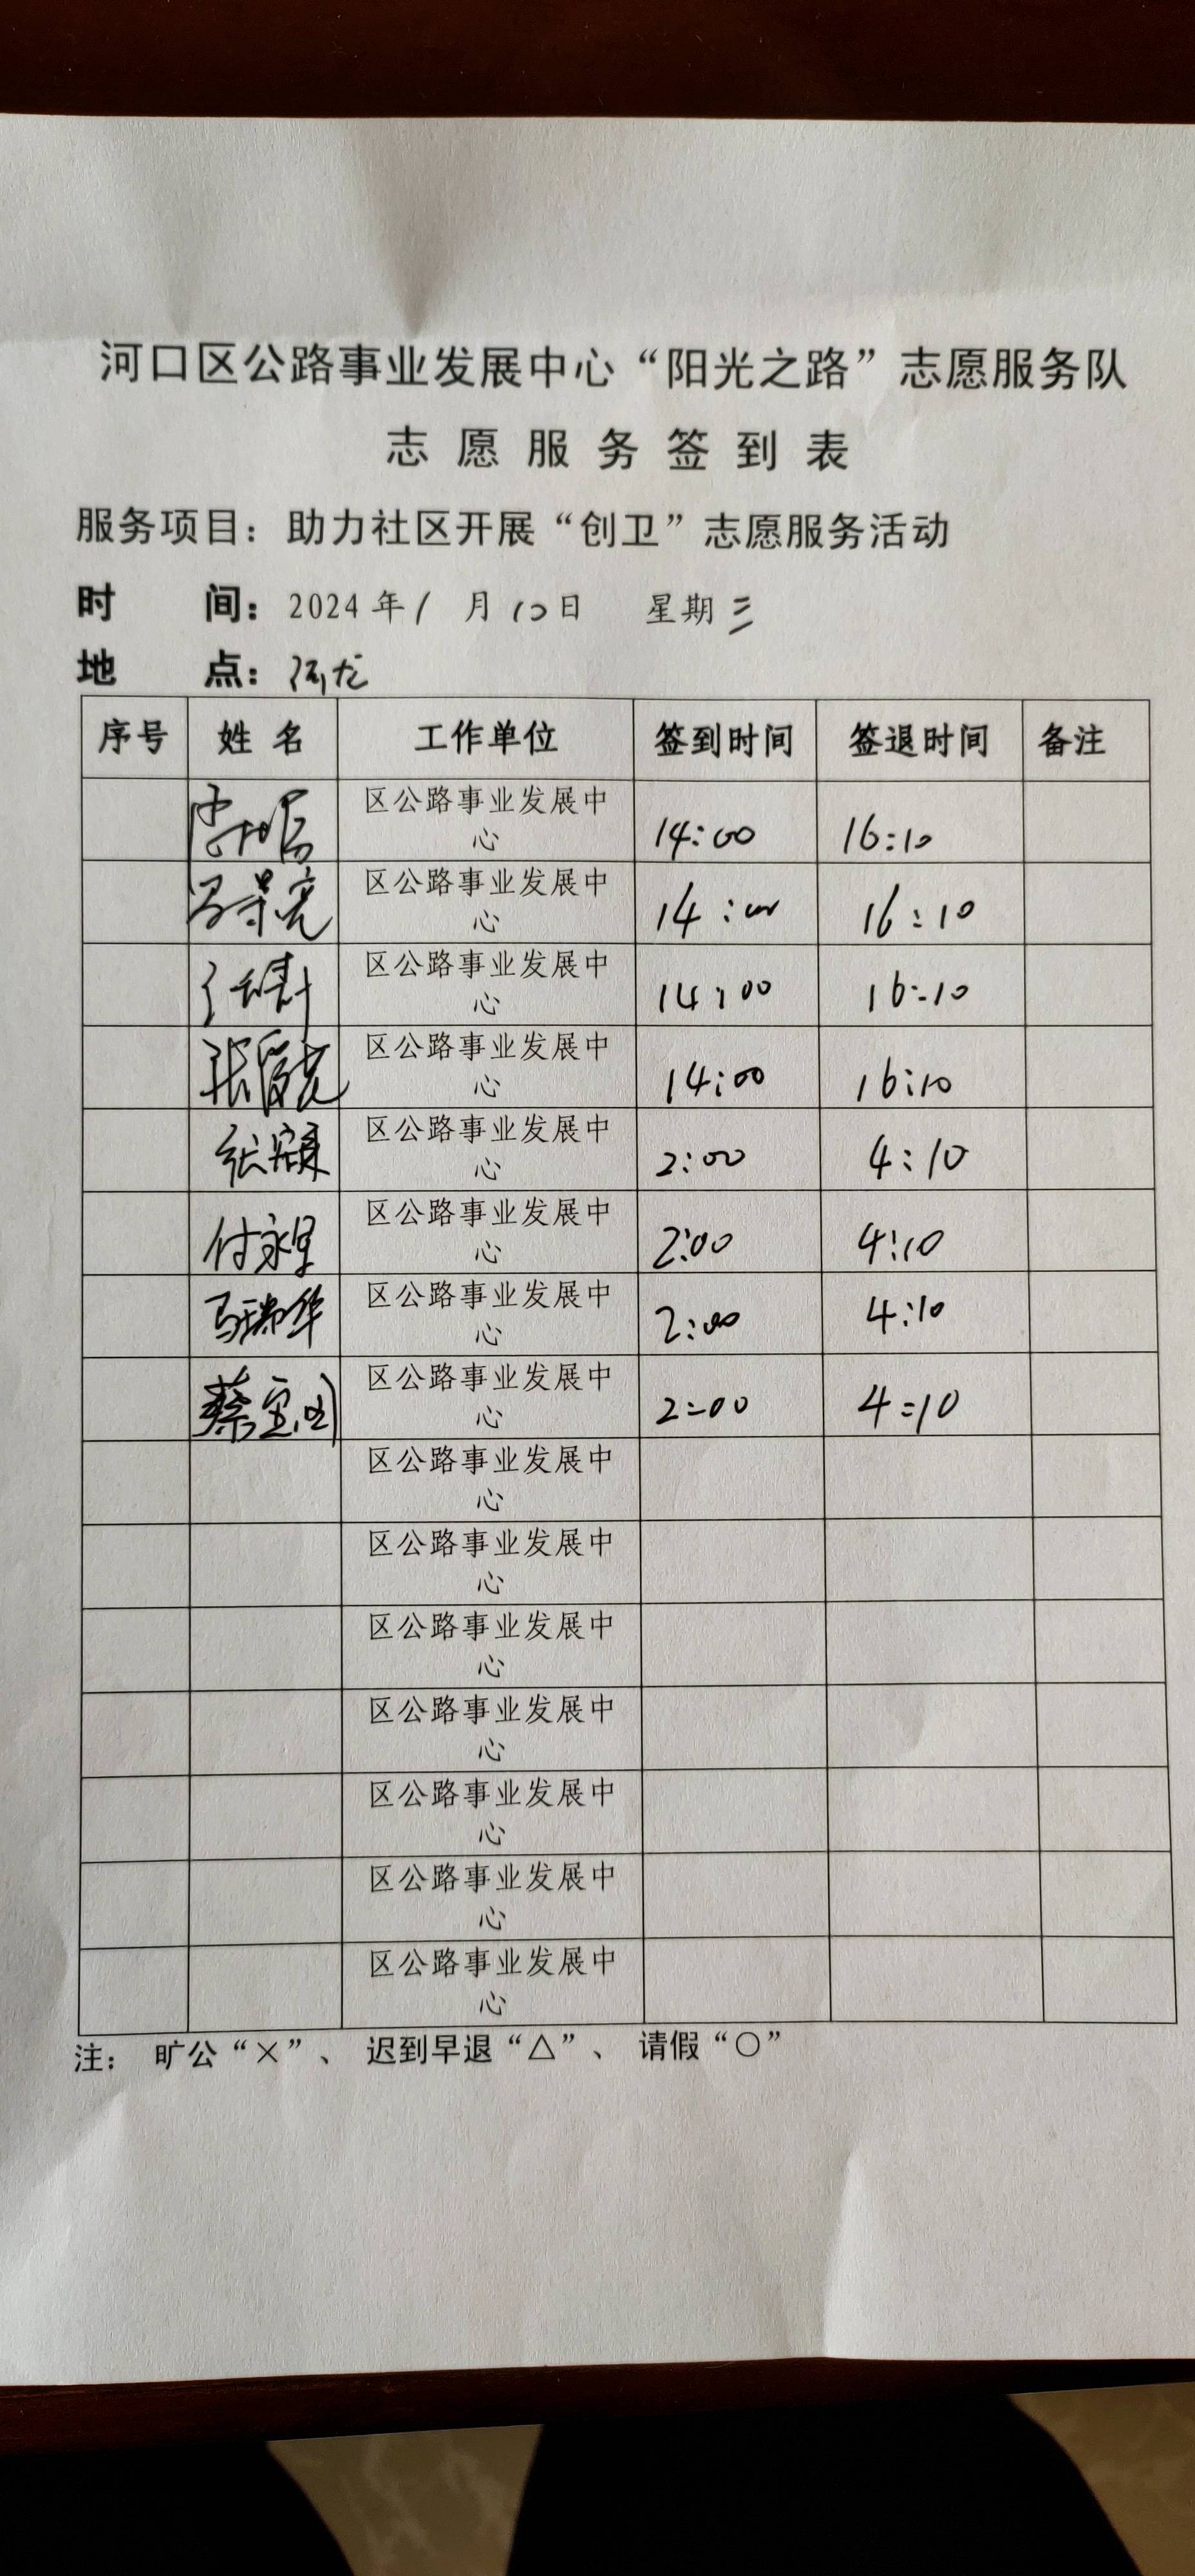 河口区公路事业发展中心“阳光之路”志愿服务队
志愿服务签到表
服务项目：助力社区开展“创卫”志愿服务活动
时 间：2024年1月10日 星期三
地 点：
序号 姓名 工作单位 签到时间 签退时间 备注
区公路事业发展中
心 14:00 16:10
区公路事业发展中
心 14:00 16:10
区公路事业发展中
心 14:00 16:10
区公路事业发展中
心 14:00 16:10
区公路事业发展中
心 2:00 4:10
区公路事业发展中
心 2:00 4:10
马瑞华 区公路事业发展中
心 2:00 4:10
蔡宝国 区公路事业发展中
心 2:00 4:10
区公路事业发展中
心
区公路事业发展中
心
区公路事业发展中
心
区公路事业发展中
心
区公路事业发展中
心
区公路事业发展中
心
区公路事业发展中
心
注： 旷公“×”、 迟到早退“△”、 请假“○”